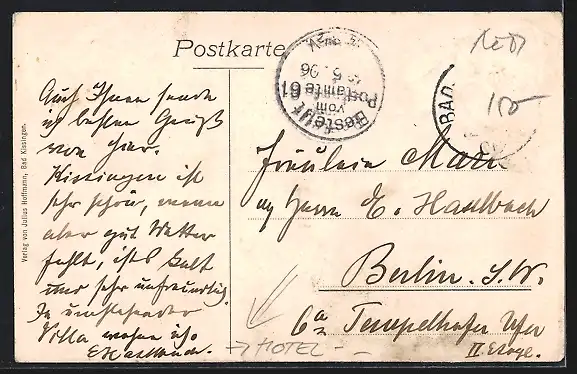 Postkarte
Auch Ihnen sende
ich besten Gruß
von hier.
Kissingen ist
sehr schön, wenn
aber gut Wetter
fehlt, ist's kalt
und sehr unfreundlich.
In umstehender
Villa wohne ich
E. Haselbach.
Verlag von Julius Hoffmann, Bad Kissingen.
Bestellt
vom
Postamte 61
5 06
BAD
Fräulein Marie
Herrn E. Haselbach
Berlin. S.W.
6a Tempelhofer Ufer
II. Etage.
HOTEL